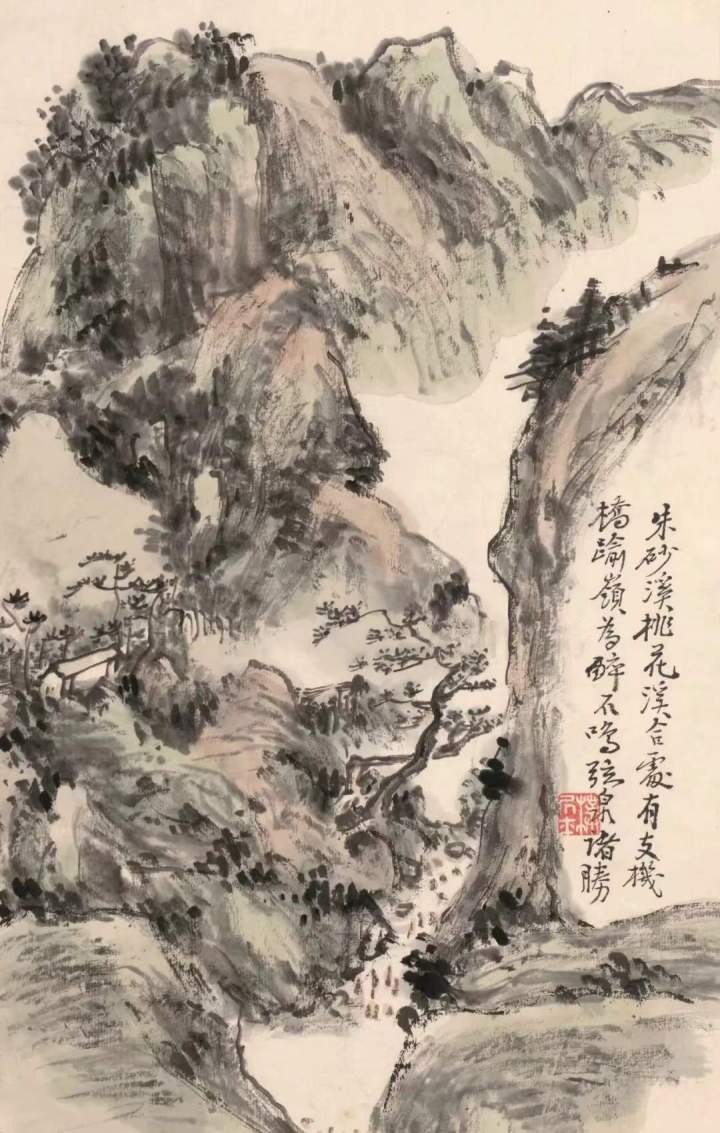 朱砂溪桃花溪合處有支機
橋踰嶺為醉石鳴弦泉諸勝